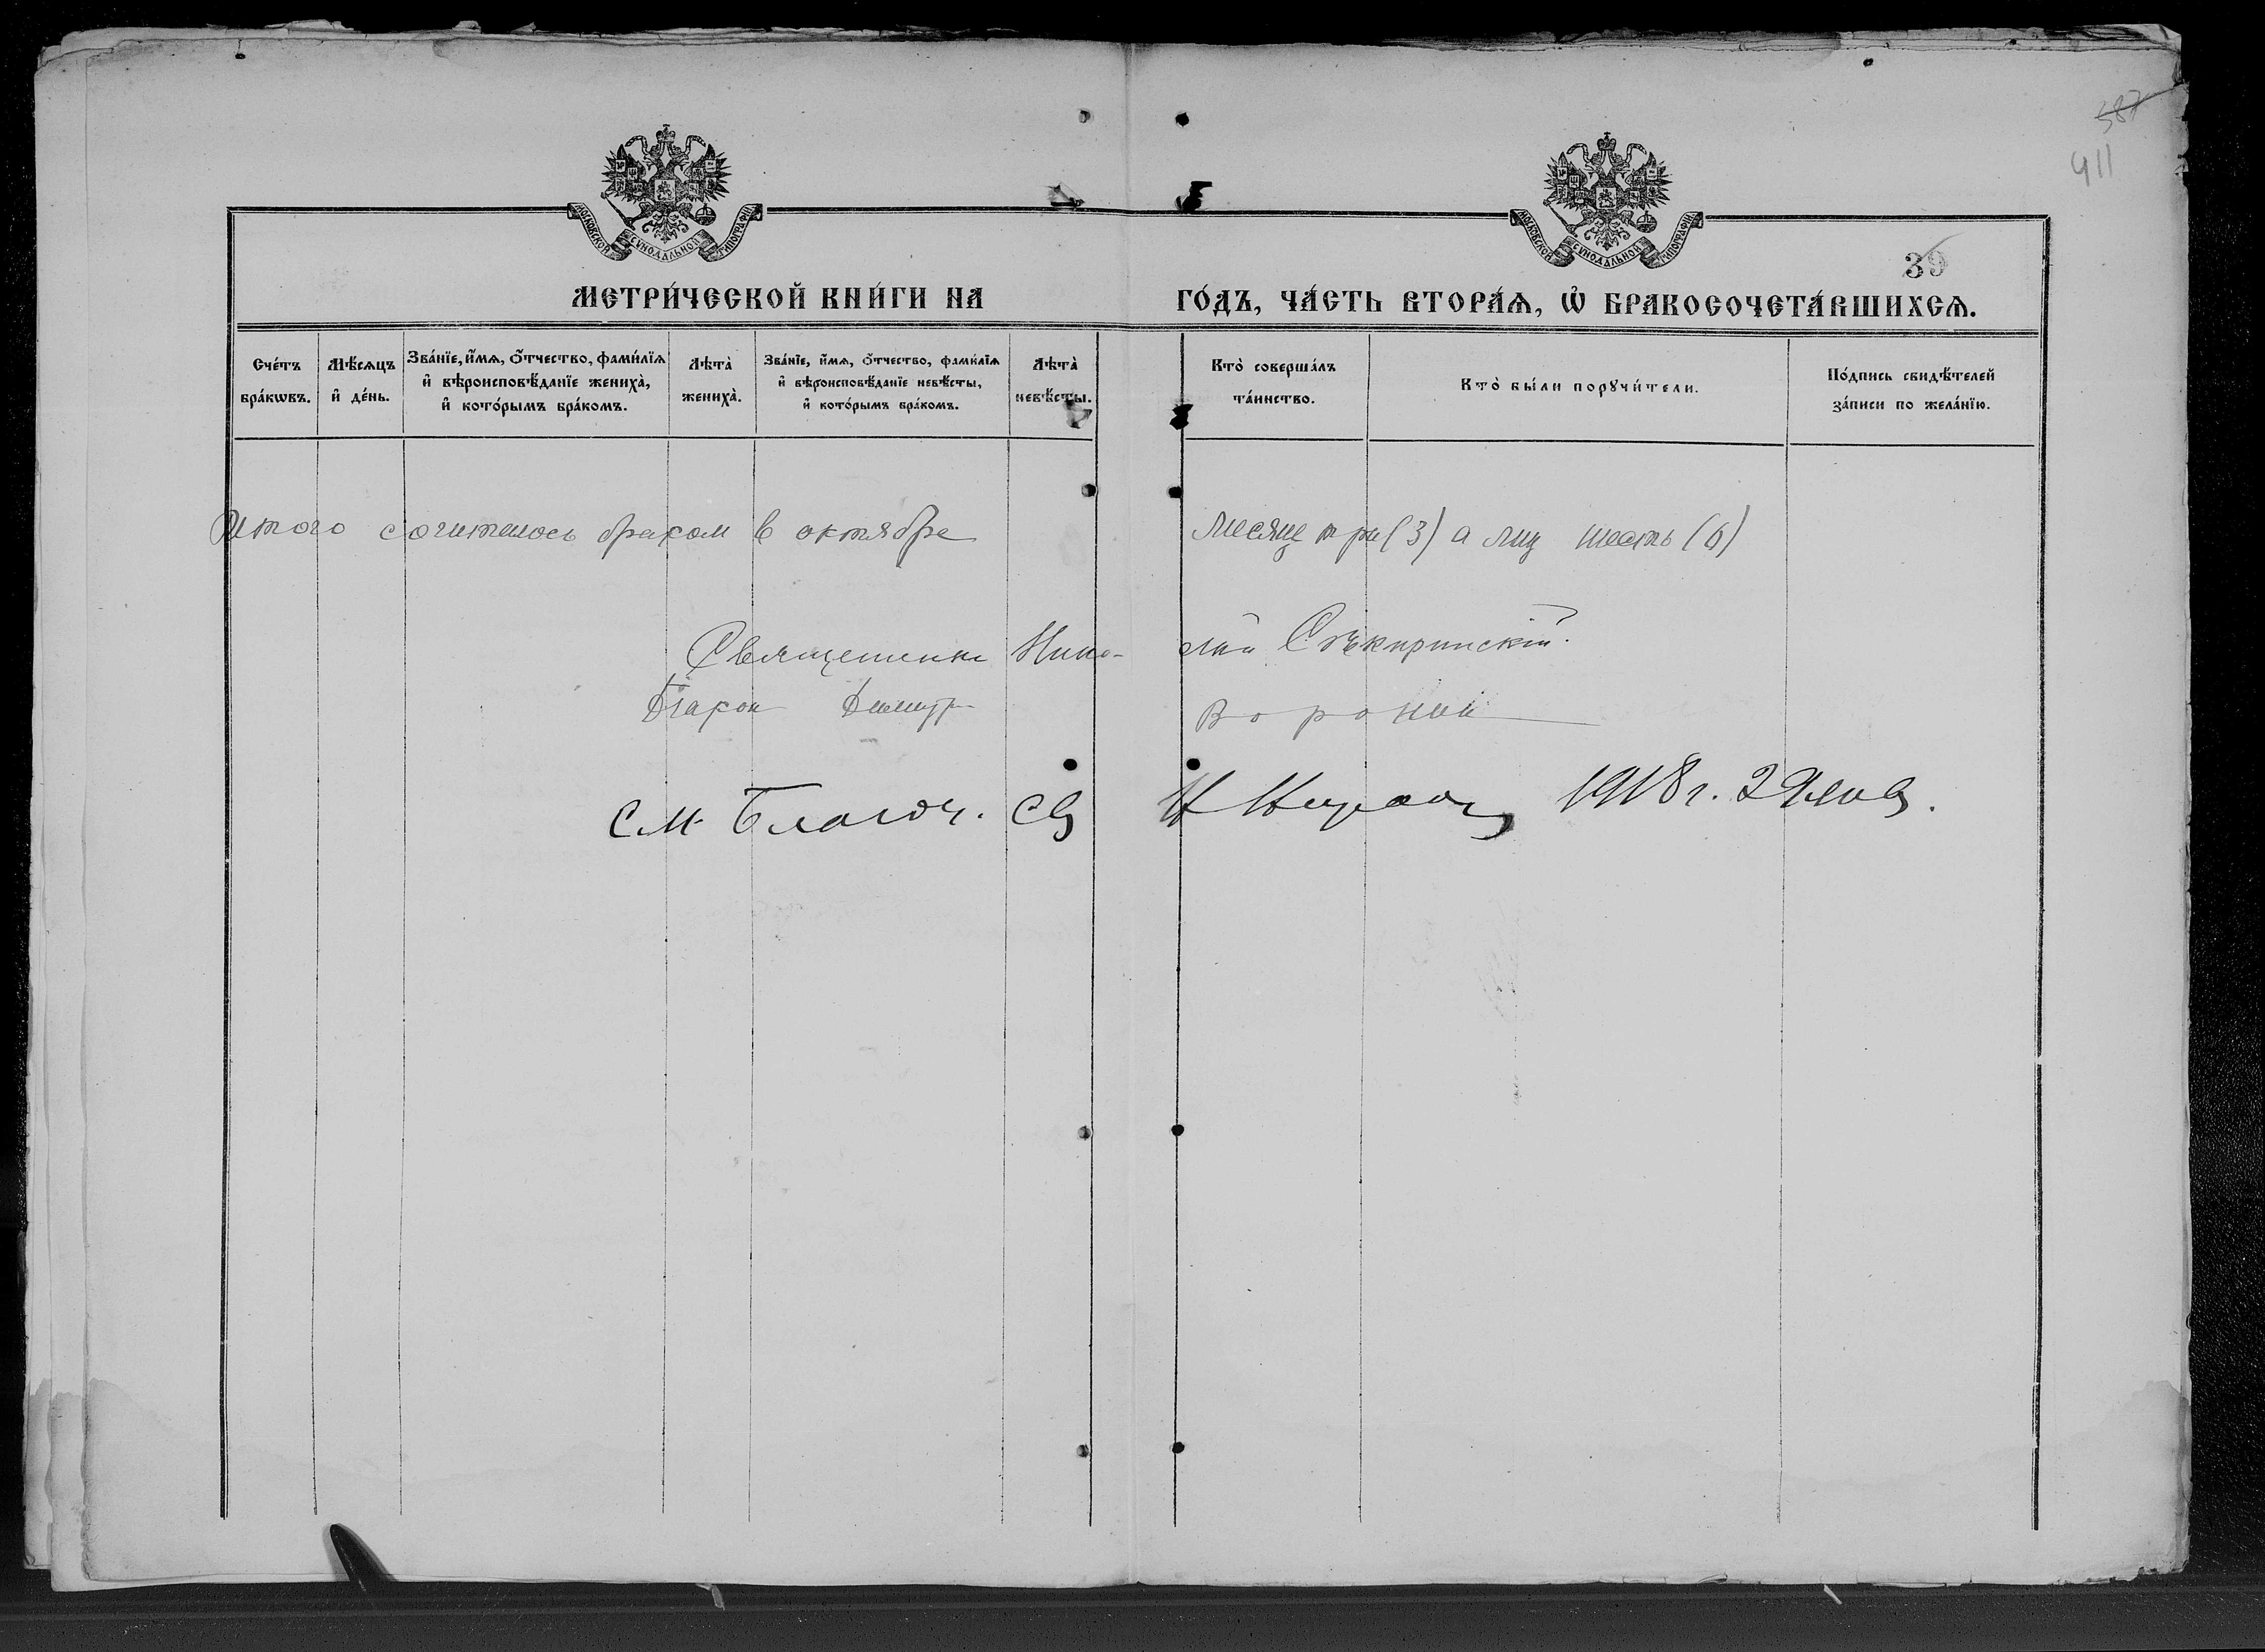 587
411
МОСКОВСКОЙ СѴНОДАЛЬНОЙ ТИПОГРАФІИ
МОСКОВСКОЙ СѴНОДАЛЬНОЙ ТИПОГРАФІИ
39
МЕТРИ́ЧЕСКОЙ КНИ́ГИ НА ГО́ДЪ, ЧА́СТЬ ВТОРА́Ѧ, Ѽ БРАКОСОЧЕТА́ВШИХСѦ.
Сче́тъ бра́кѡвъ.
Мѣ́сяцъ и҆ де́нь.
Зва́нїе, и҆́мѧ, о҆́тчество, фами́лїѧ и҆ вѣроисповѣ́данїе жениха̀, и҆ кото́рымъ бра́комъ.
Лѣта̀ жениха̀.
Зва́нїе, и҆́мѧ, о҆́тчество, фами́лїѧ и҆ вѣроисповѣ́данїе невѣ́сты, и҆ кото́рымъ бра́комъ.
Лѣта̀ невѣ́сты.
Кто̀ соверша́лъ та́инство.
Кто̀ бы́ли порꙋчи́тели.
По́дпись свидѣ́телей за́писи по жела́нїю.
Итого сочиталось браком в октябре месяце три (3) а лиц шесть (6)
Священник Николай Сѣкиринскій.
Діакон Димитр Воронин
См. Благоч. св Н 1918 г. 2 Янв.